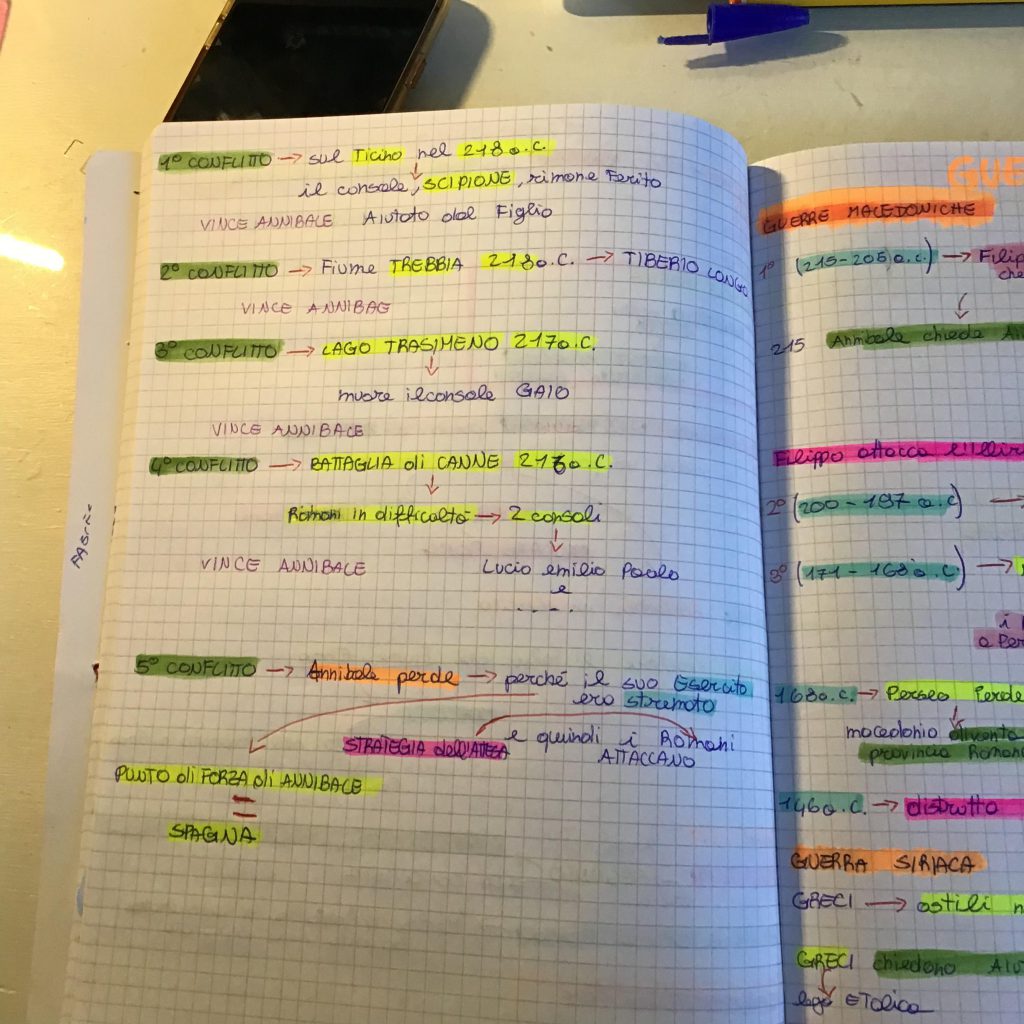 1° CONFLITTO → sul Ticino nel 218 a.C.
il console, SCIPIONE, rimane Ferito
VINCE ANNIBALE Aiutato dal Figlio
2° CONFLITTO → Fiume TREBBIA 218 a.C. → TIBERIO LONGO
VINCE ANNIBAG
3° CONFLITTO → LAGO TRASIMENO 217 a.C.
muore il console GAIO
VINCE ANNIBALE
4° CONFLITTO → BATTAGLIA di CANNE 216 a.C.
Romani in difficoltà → 2 consoli
VINCE ANNIBALE Lucio emilio Paolo
e
....
5° CONFLITTO → Annibale perde → perché il suo Esercito
era stremato
STRATEGIA dell'ATTESA e quindi i Romani
ATTACCANO
PUNTO di FORZA di ANNIBALE
=
SPAGNA
FABRIZ
GUE
GUERRE MACEDONICHE
1° (215-205 a.C.) → Filip
che
215 Annibale chiede
Filippo attacca l'Illir
2° (200-197 a.C) →
3° (171-168 a.C) →
i
a Per
168 a.C. → Perseo Perde
macedonia diventa
provincia Romana
146 a.C. → distrutta
GUERRA SIRIACA
GRECI → ostili n
GRECI chiedono AIU
lega ETOlica